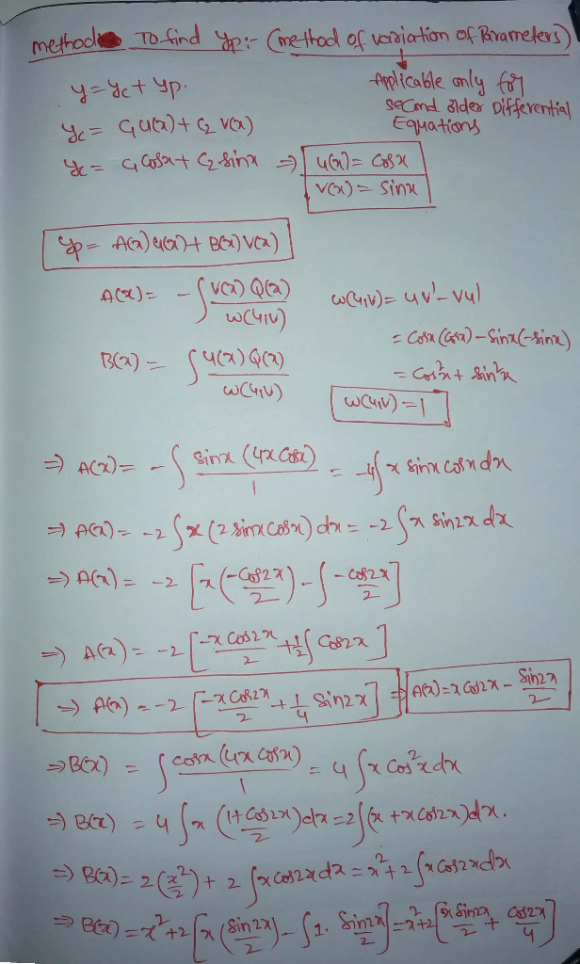 method To find yp:- (method of variation of Parameters)
y = yc + yp.
Applicable only for
second older Differential
Equations
yc = C₁u(x) + C₂ v(x)
yc = C₁ Cosx + C₂ sinx ⇒ u(x) = Cosx
v(x) = Sinx
yp = A(x)u(x) + B(x)v(x)
A(x) = - ∫ v(x) Q(x) / w(u,v)
w(u,v) = uv' - vu'
= Cosx (Cosx) - Sinx(-Sinx)
B(x) = ∫ u(x) Q(x) / w(u,v)
= Cos²x + Sin²x
w(u,v) = 1
⇒ A(x) = - ∫ sinx (4x Cosx) / 1 = -4∫ x sinx cosx dx
⇒ A(x) = -2 ∫ x (2 sinx cosx) dx = -2 ∫ x sin2x dx
⇒ A(x) = -2 [x(-Cos2x/2) - ∫ -cos2x/2]
⇒ A(x) = -2 [-x cos2x/2 + 1/2 ∫ Cos2x]
⇒ A(x) = -2 [-x cos2x/2 + 1/4 Sin2x] ⇒ A(x) = x cos2x - Sin2x/2
⇒ B(x) = ∫ cosx (4x cosx) / 1 = 4 ∫ x cos²x dx
⇒ B(x) = 4 ∫ x (1+Cos2x / 2) dx = 2 ∫(x + x cos2x)dx.
⇒ B(x) = 2(x²/2) + 2 ∫ x cos2x dx = x² + 2 ∫ x cos2x dx
⇒ B(x) = x² + 2[x (sin2x/2) - ∫ 1. Sin2x/2] = x² + 2[x Sin2x/2 + Cos2x/4]